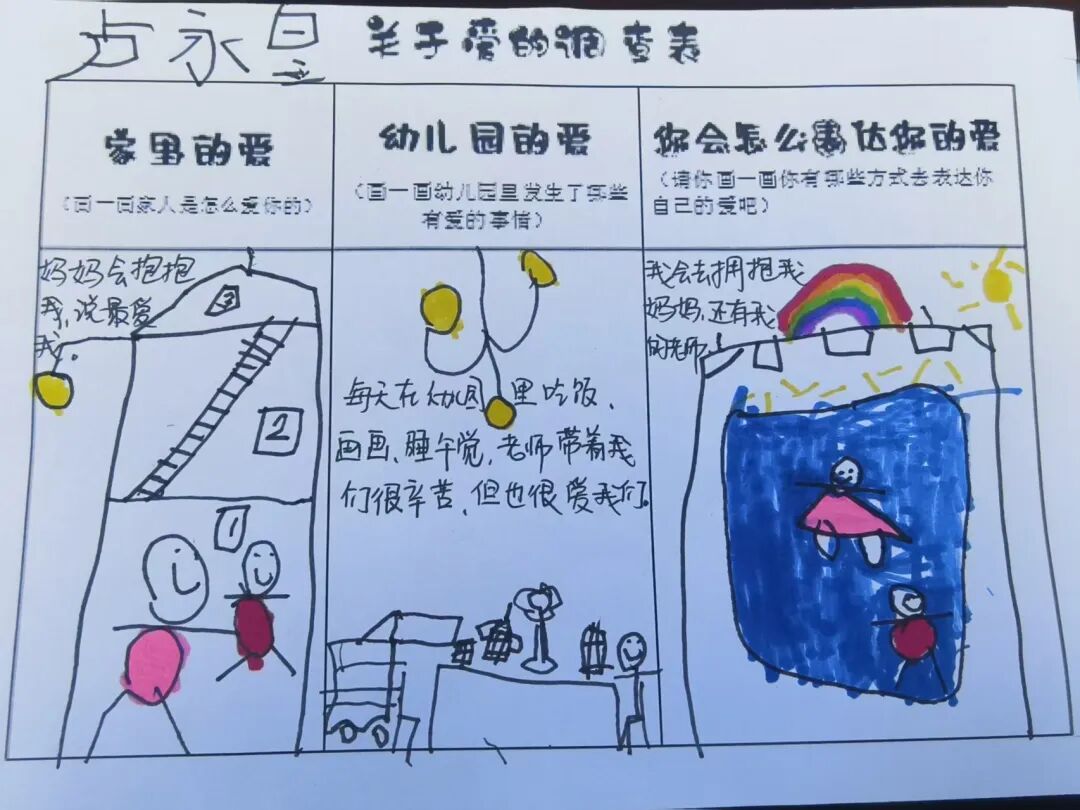 卢永 关于爱的调查表
家里的爱
（画一画家人是怎么爱你的）
妈妈会抱抱
我，说最爱
我。
3
2
1
幼儿园的爱
（画一画幼儿园里发生了哪些
有爱的事情）
每天在幼儿园里吃饭、
画画、睡午觉，老师带着我
们很辛苦，但也很爱我们。
你会怎么表达你的爱
（请你画一画你有哪些方式去表达你
自己的爱吧）
我会去拥抱我
妈妈，还有我
的老师